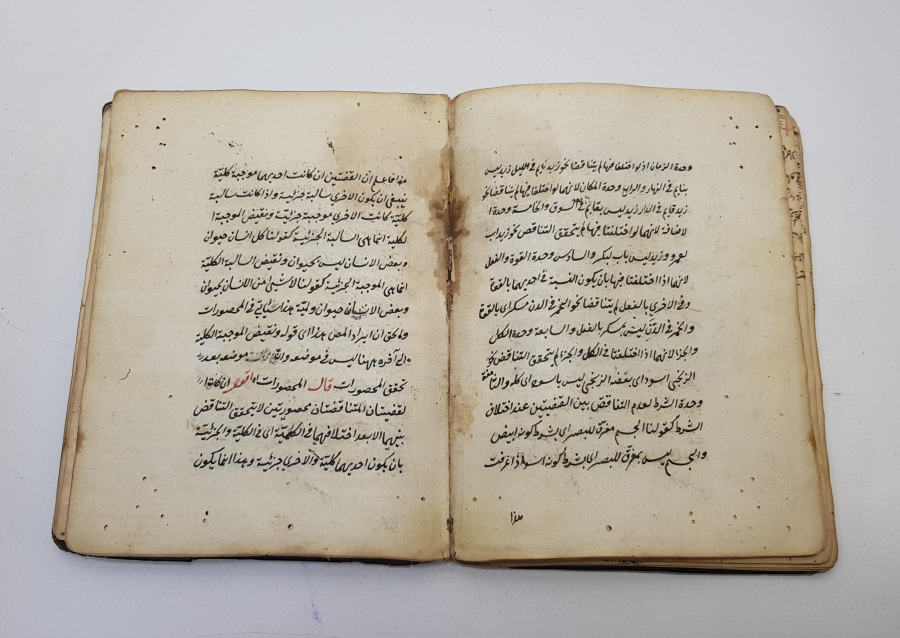 وحدة الزمان اذ لو اختلفا فيها لم يتناقضا نحو زيد نايم في الليل زيد ليس
بنايم في النهار والرابع وحدة المكان لانهما لو اختلفا فيها لم يتناقضا نحو
زيد قايم في الدار زيد ليس بقايم في السوق والخامسة وحدة ا
لاضافة لانهما لو اختلفتا فيها لم يتحقق التناقض نحو زيد اب
لعمرو وزيد ليس باب لبكر والسادس وحدة القوة والفعل
لانهما اذا اختلفتا فيها بان يكون النسبة في احديهما بالقوة
وفي الاخرى بالفعل لم يتناقضا نحو الخمر في الدن مسكر اى بالقوة
والخمر في الدن ليس بمسكر بالفعل والسابعة وحدة الكل
والجزء لانهما اذا اختلفتا في الكل والجزء لم يتحقق التناقض نحو
الزنجي اسود اى بعضه الزنجي ليس باسود اى كله والثامنة
وحدة الشرط لعدم التناقض بين القضيتين عند اختلاف
الشرط كقولنا الجسم مفرق للبصر اى بشرط كونه ابيض
والجسم ليس بمفرق للبصر اى بشرط كونه اسود اذا عرفت
هذا
هذا فاعلم ان القضيتين ان كانت احديهما موجبة كلية
ينبغي ان يكون الاخرى سالبة جزئية واذا كانت سالبة
كلية كانت الاخرى موجبة جزئية ونقيض الموجبة ا
لكلية انما هى السالبة الجزئية كقولنا كل انسان حيوان
وبعض الانسان ليس بحيوان ونقيض السالبة الكلية
انما هى الموجبة الجزئية كقولنا لا شئ من الانسان بحيوان
وبعض الانسان حيوان ولمية هذا سيأتي في المحصورات
والحق ان ايراد المص هذا اى قوله ونقيض الموجبة الكلية
الى آخره ههنا ليس في موضعه وانما موضعه بعد
تحقق المحصورات قال المحصورات اه اقول ان كانا
لقضيتان المتناقضتان محصورتين لا يتحقق التناقض
بينهما الا بعد اختلافهما في الكلمية اى في الكلية والجزئية
بان يكون احديهما كلية والاخرى جزئية وهذا انما يكون